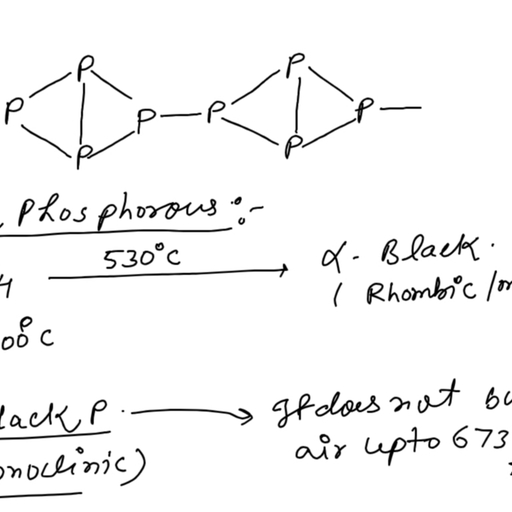 P P
P P — P P —
P P
Phosphorous :-
530°C
α- Black.
( Rhombic /m
00°C
lack P. → It does not bu
onoclinic) air upto 673